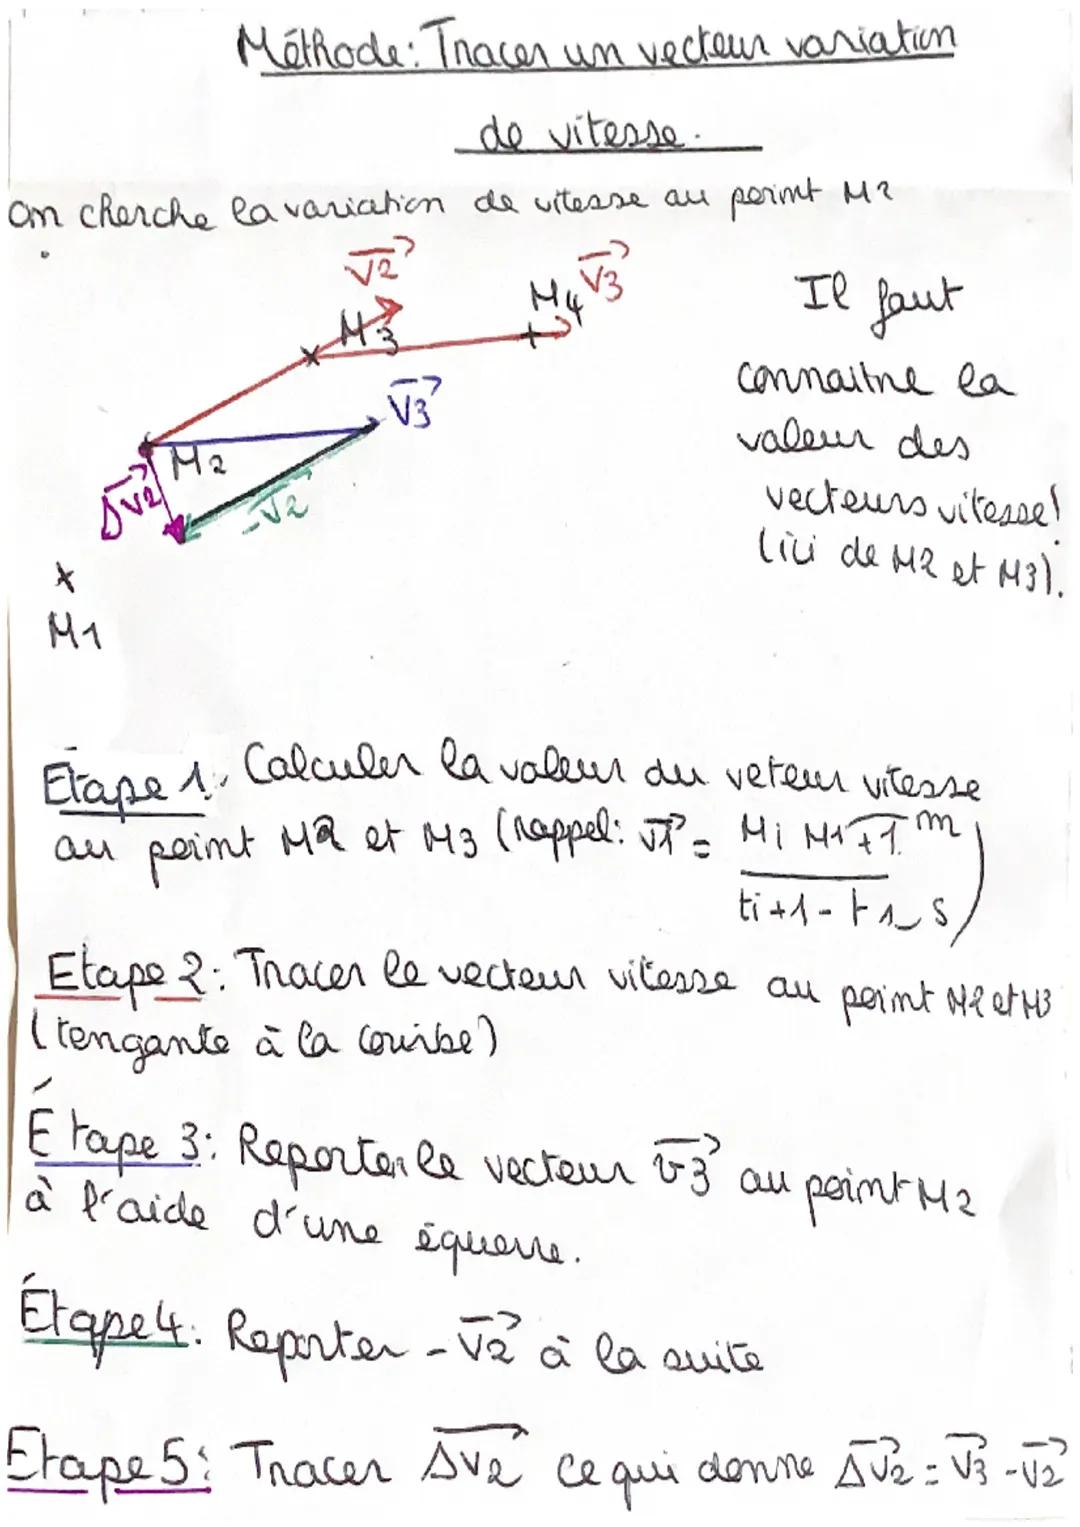 Méthode: Tracer un vecteur variation
de vitesse.
On cherche la variation de vitesse au point M2
V2
V3
M3
M4
V3
M2
ΔV2
-V2
M1
Il faut
connaitre la
valeur des
vecteurs vitesse!
(ici de M2 et M3).
Etape 1: Calculer la valeur du veteur vitesse
au point M2 et M3 (rappel: V1 = Mi M1+1 m
ti+1-t1 s)
Etape 2: Tracer le vecteur vitesse au point M2 et M3
(tengante à la courbe)
Étape 3: Reporter le vecteur V3 au point M2
à l'aide d'une équerre.
Étape 4: Reporter -V2 à la suite
Etape 5: Tracer ΔV2 ce qui donne ΔV2 = V3 - V2